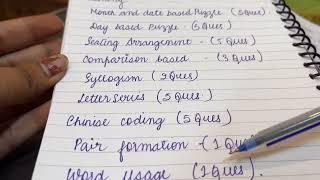 Month and date based Puzzle (5Ques)
Day based Puzzle - (5 Ques)
Seating Arrangement - (5 Ques)
Comparison based - (3 Ques)
Syllogism (2Ques)
Letter Series (5 Ques)
Chinise coding (5 Ques)
Pair formation - (1 Ques)
Word usage (1Ques).